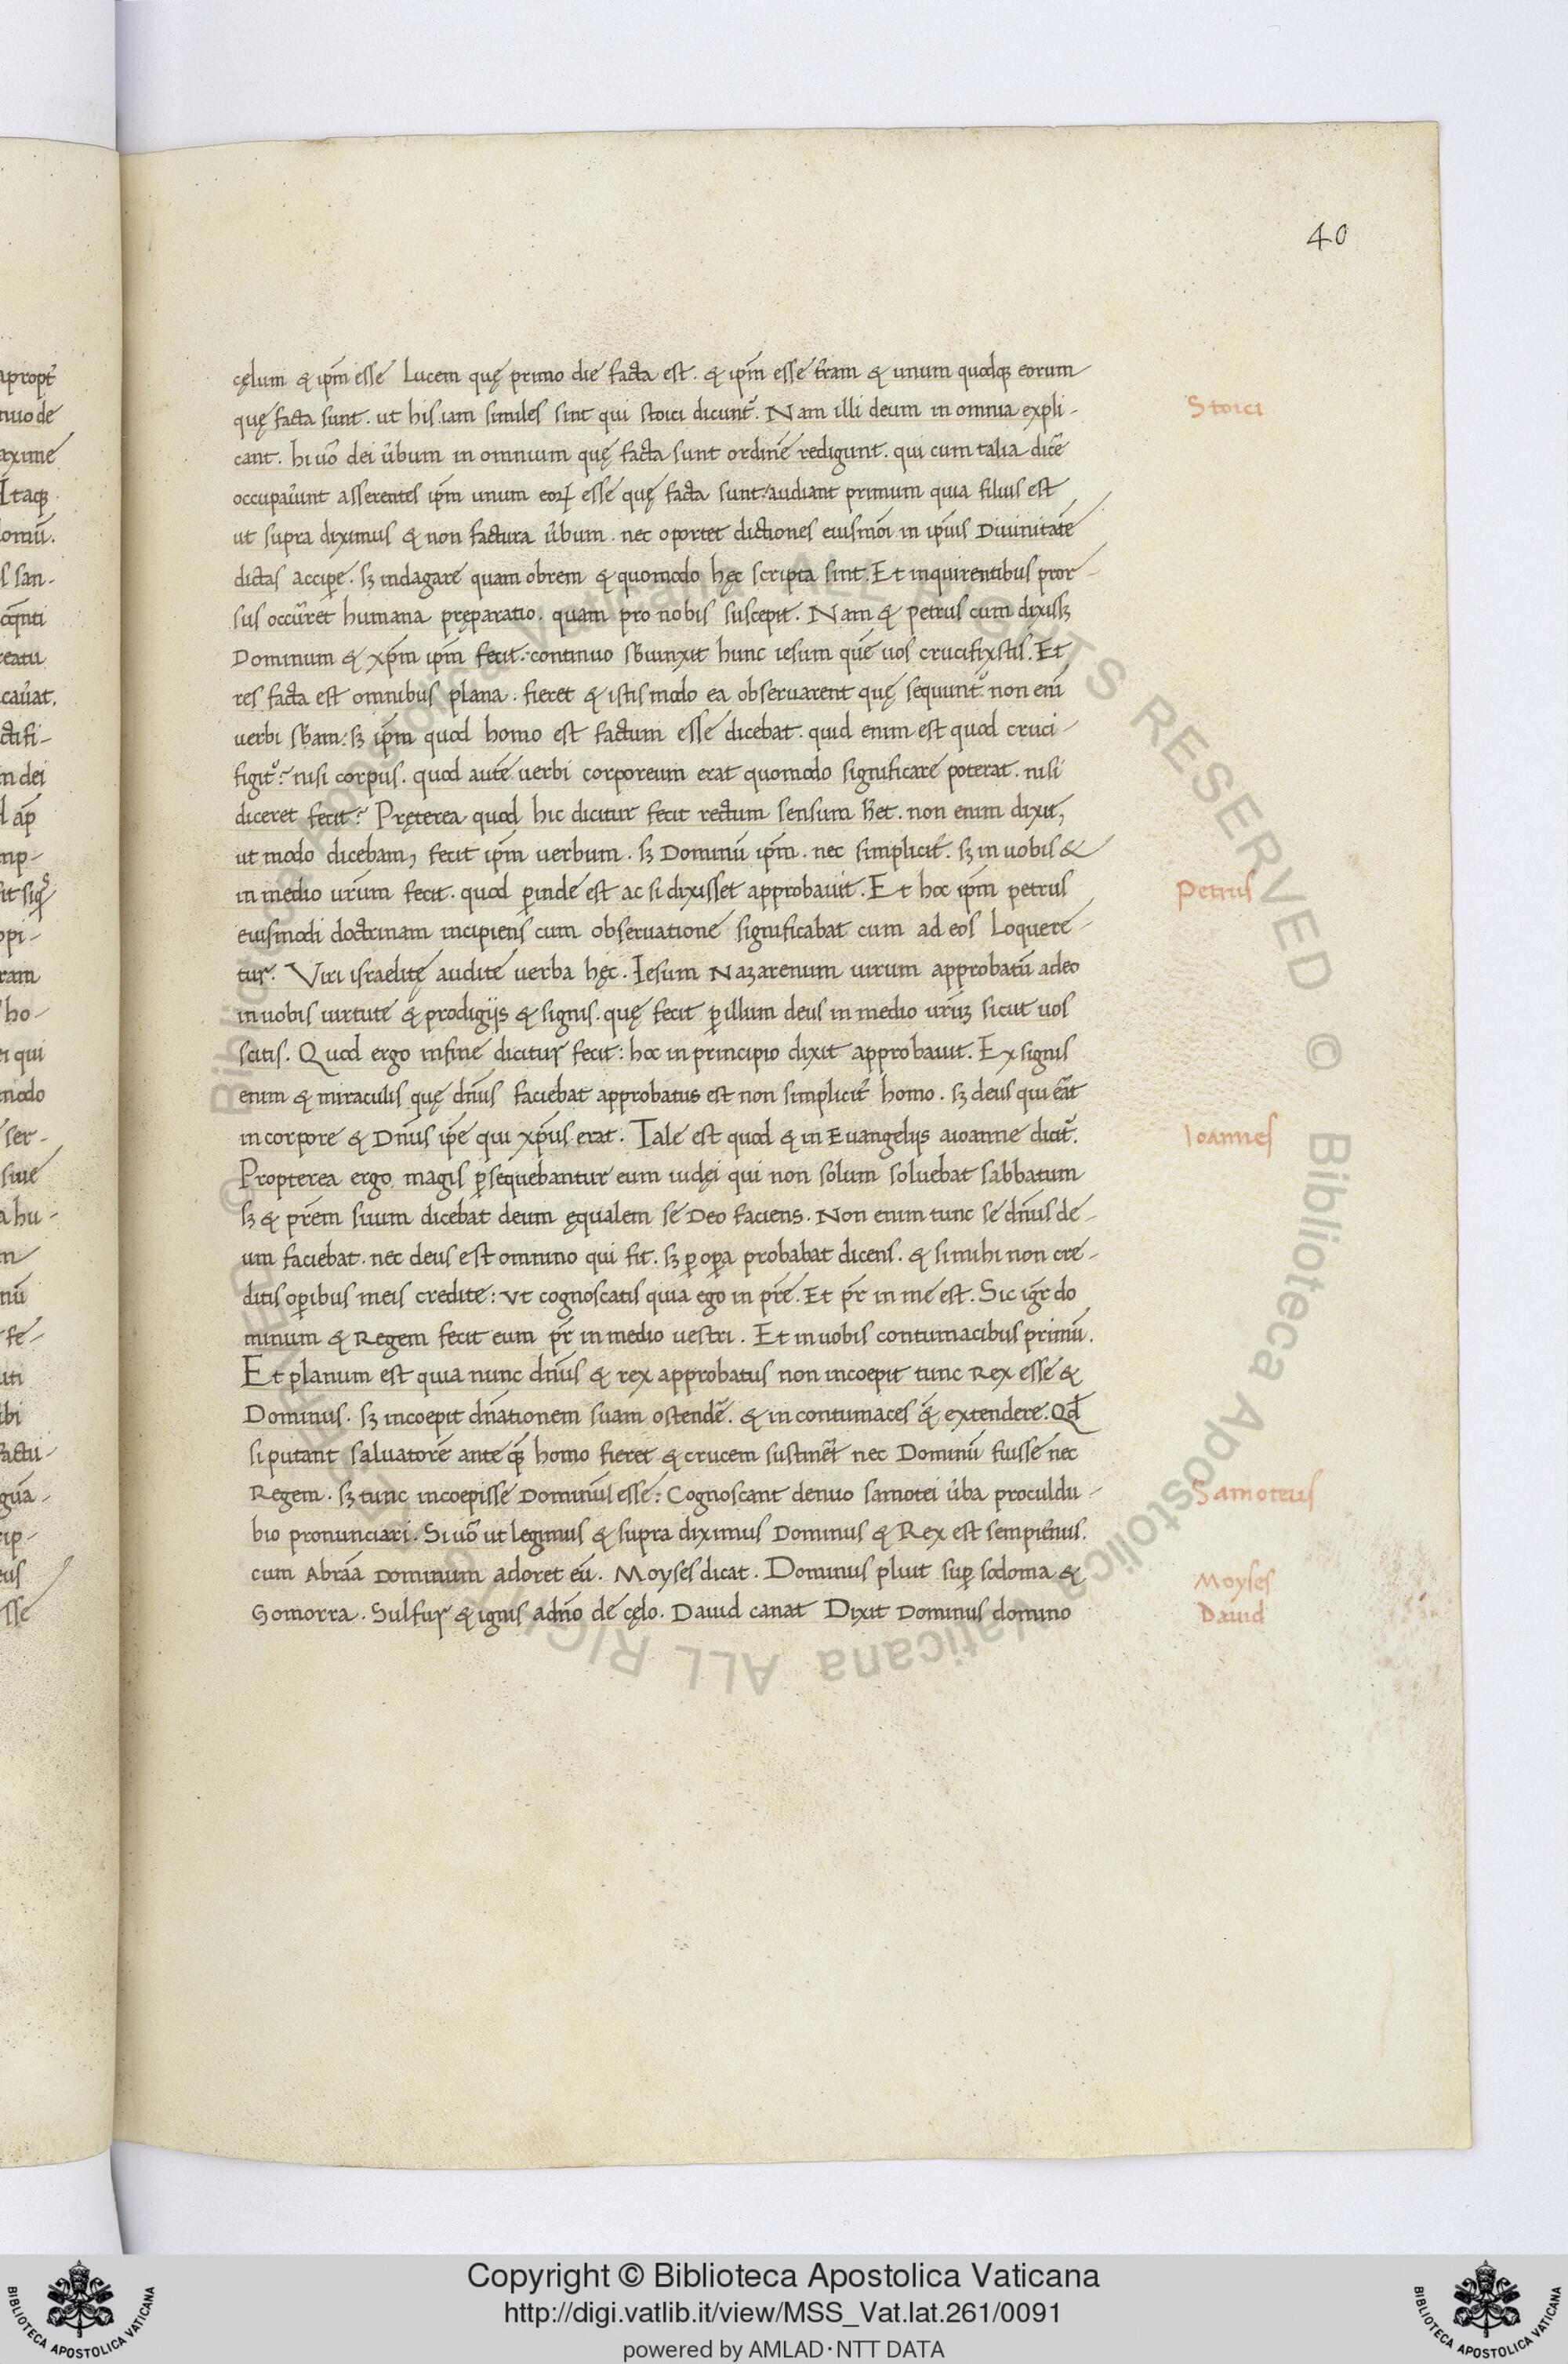 40
cęlum & ip̄m esse Lucem quę primo die facta est. & ip̄m esse t̄ram & unum quodq; eorum
quę facta sunt. ut his iam similes sint qui stoici dicunt᷑. Nam illi deum in omnia expli-
Stoici
cant. hi uo᷑ dei u᷑bum in omnium quę facta sunt ordinē redigunt. qui cum talia dicē
occupau᷑unt asserentes ip̄m unum eorꝝ esse quę facta sunt: audiant primum quia filius est
ut supra diximus & non factura u᷑bum. nec oportet dictiones eiusmōi in ip̄ius Diuinitate
dictas accipe᷑. sꝫ indagare quam obrem & quomodo hęc scripta sint. Et inquirentibus pror-
sus occu᷑ret humana pręparatio. quam pro nobis suscepit. Nam & petrus cum dixissꝫ
Dominum & xp̄m ip̄m fecit: continuo sƀiunxit hunc iesum quē uos crucifixstis. Et
res facta est omnibus plana. fieret & istis modo ea obseruarent quę sequunt᷑ non enī
uerbi sƀam: sꝫ ip̄m quod homo est factum esse dicebat. quid enim est quod cruci-
figit᷑: nisi corpus. quod autē uerbi corporeum erat quomodo significare poterat. nisi
diceret fecit? Pręterea quod hic dicitur fecit rectum sensum ħet. non enim dixit,
ut modo dicebam, fecit ip̄m uerbum. sꝫ Dominū ip̄m. nec simplicit᷑. sꝫ in uobis &
in medio ur̄um fecit. quod ꝑinde est ac si dixisset approbauit. Et hoc ip̄m petrus
Petrus
euismodi doctrinam incipiens cum obseruatione significabat cum ad eos Loquere-
tur. Viri israelitę audite uerba hęc. Iesum Nazarenum uirum approbatū adeo
in uobis uirtute & prodigijs & signis. quę fecit ꝑ illum deus in medio ur̄m sicut uos
scitis. Quod ergo in fine dicitur fecit: hoc in principio dixit approbauit. Ex signis
enim & miraculis quę dn̄us faciebat approbatus est non simplicit᷑ homo. sꝫ deus qui eāt
in corpore & Dn̄us ip̄e qui xp̄us erat. Tale est quod & in Euangelijs aioanne dicit᷑.
Ioannes
Propterea ergo magis ꝑsequebantur eum iudęi qui non solum soluebat sabbatum
sꝫ & pr̄em suum dicebat deum ęqualem se Deo faciens. Non enim tunc se dn̄us de-
um faciebat. nec deus est omnino qui fit. sꝫ ꝑ oꝑa probabat dicens. & si mihi non cre-
ditis oꝑibus meis credite: ut cognoscatis quia ego in pr̄e. Et pr̄ in me est. Sic igr̄ do
minum & Regem fecit eum pr̄ in medio uestri. Et in uobis contumacibus primū.
Et planum est quia nunc dn̄us & rex approbatus non incoepit tunc Rex esse &
Dominus. sꝫ incoepit dn̄ationem suam ostendē. & in contumaces extendere. Qđ
si putant saluatorē ante qꝫ homo fieret & crucem sustinēt nec Dominū fuisse nec
Regem. sꝫ tunc incoepisse Dominū esse: Cognoscant denuo samotei u᷑ba proculdu-
Samoteus
bio pronunciari. Si uo᷑ ut legimus & supra diximus Dominus & Rex est sempit᷑nus.
cum Abrāa Dominum adoret eū. Moyses dicat. Dominus pluit suꝑ sodoma &
Moyses
Gomorra. Sulfur & ignis adn̄o de cęlo. Dauid canat Dixit Dominus domino
Dauid
Copyright © Biblioteca Apostolica Vaticana
http://digi.vatlib.it/view/MSS_Vat.lat.261/0091
powered by AMLAD·NTT DATA